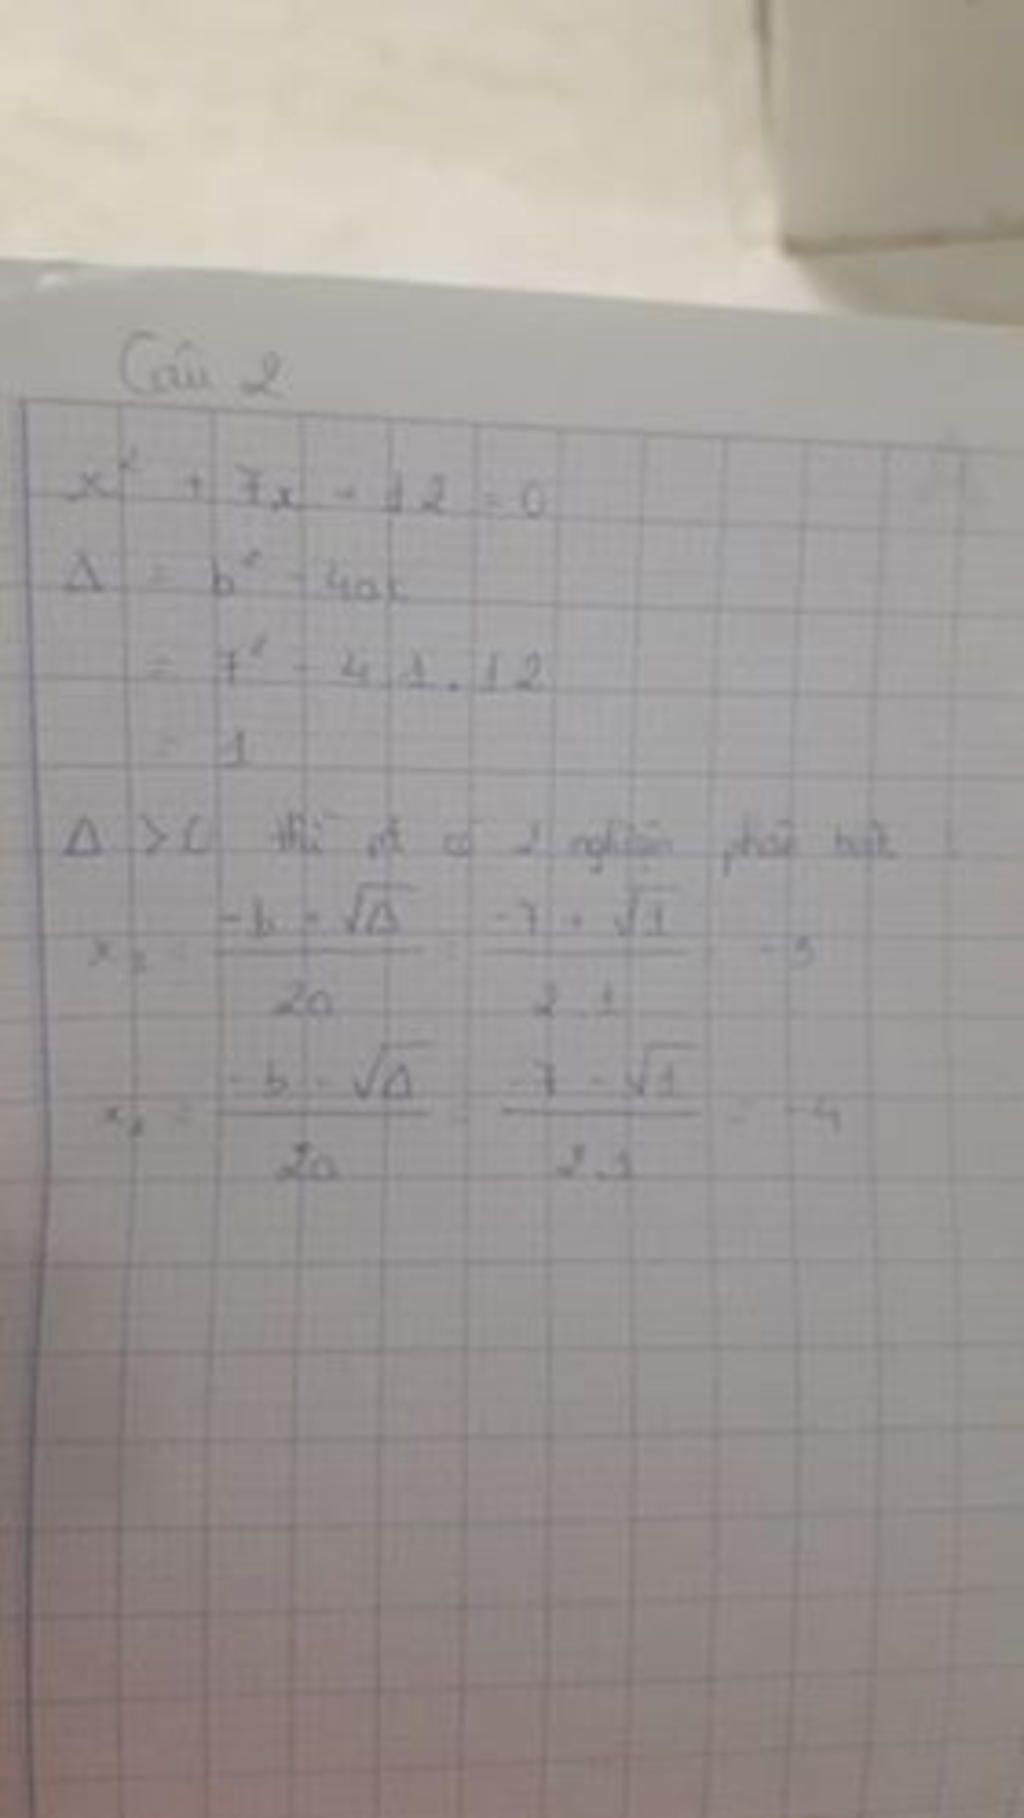 Câu 2
x² + 7x + 12 = 0
Δ = b² - 4ac
= 7² - 4.1.12
= 1
Δ > 0 thì pt có 2 nghiệm phân biệt :
x₁ = (-b + √Δ)/2a = (-7 + √1)/2.1 = -3
x₂ = (-b - √Δ)/2a = (-7 - √1)/2.1 = -4